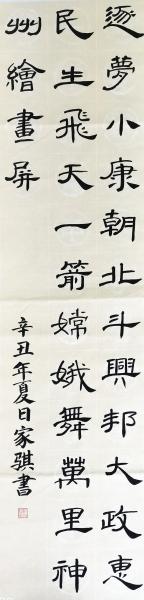 逐夢小康朝北斗興邦大政惠
民生飛天一箭嫦娥舞萬里神
州繪畫屏
辛丑年夏日家騏書